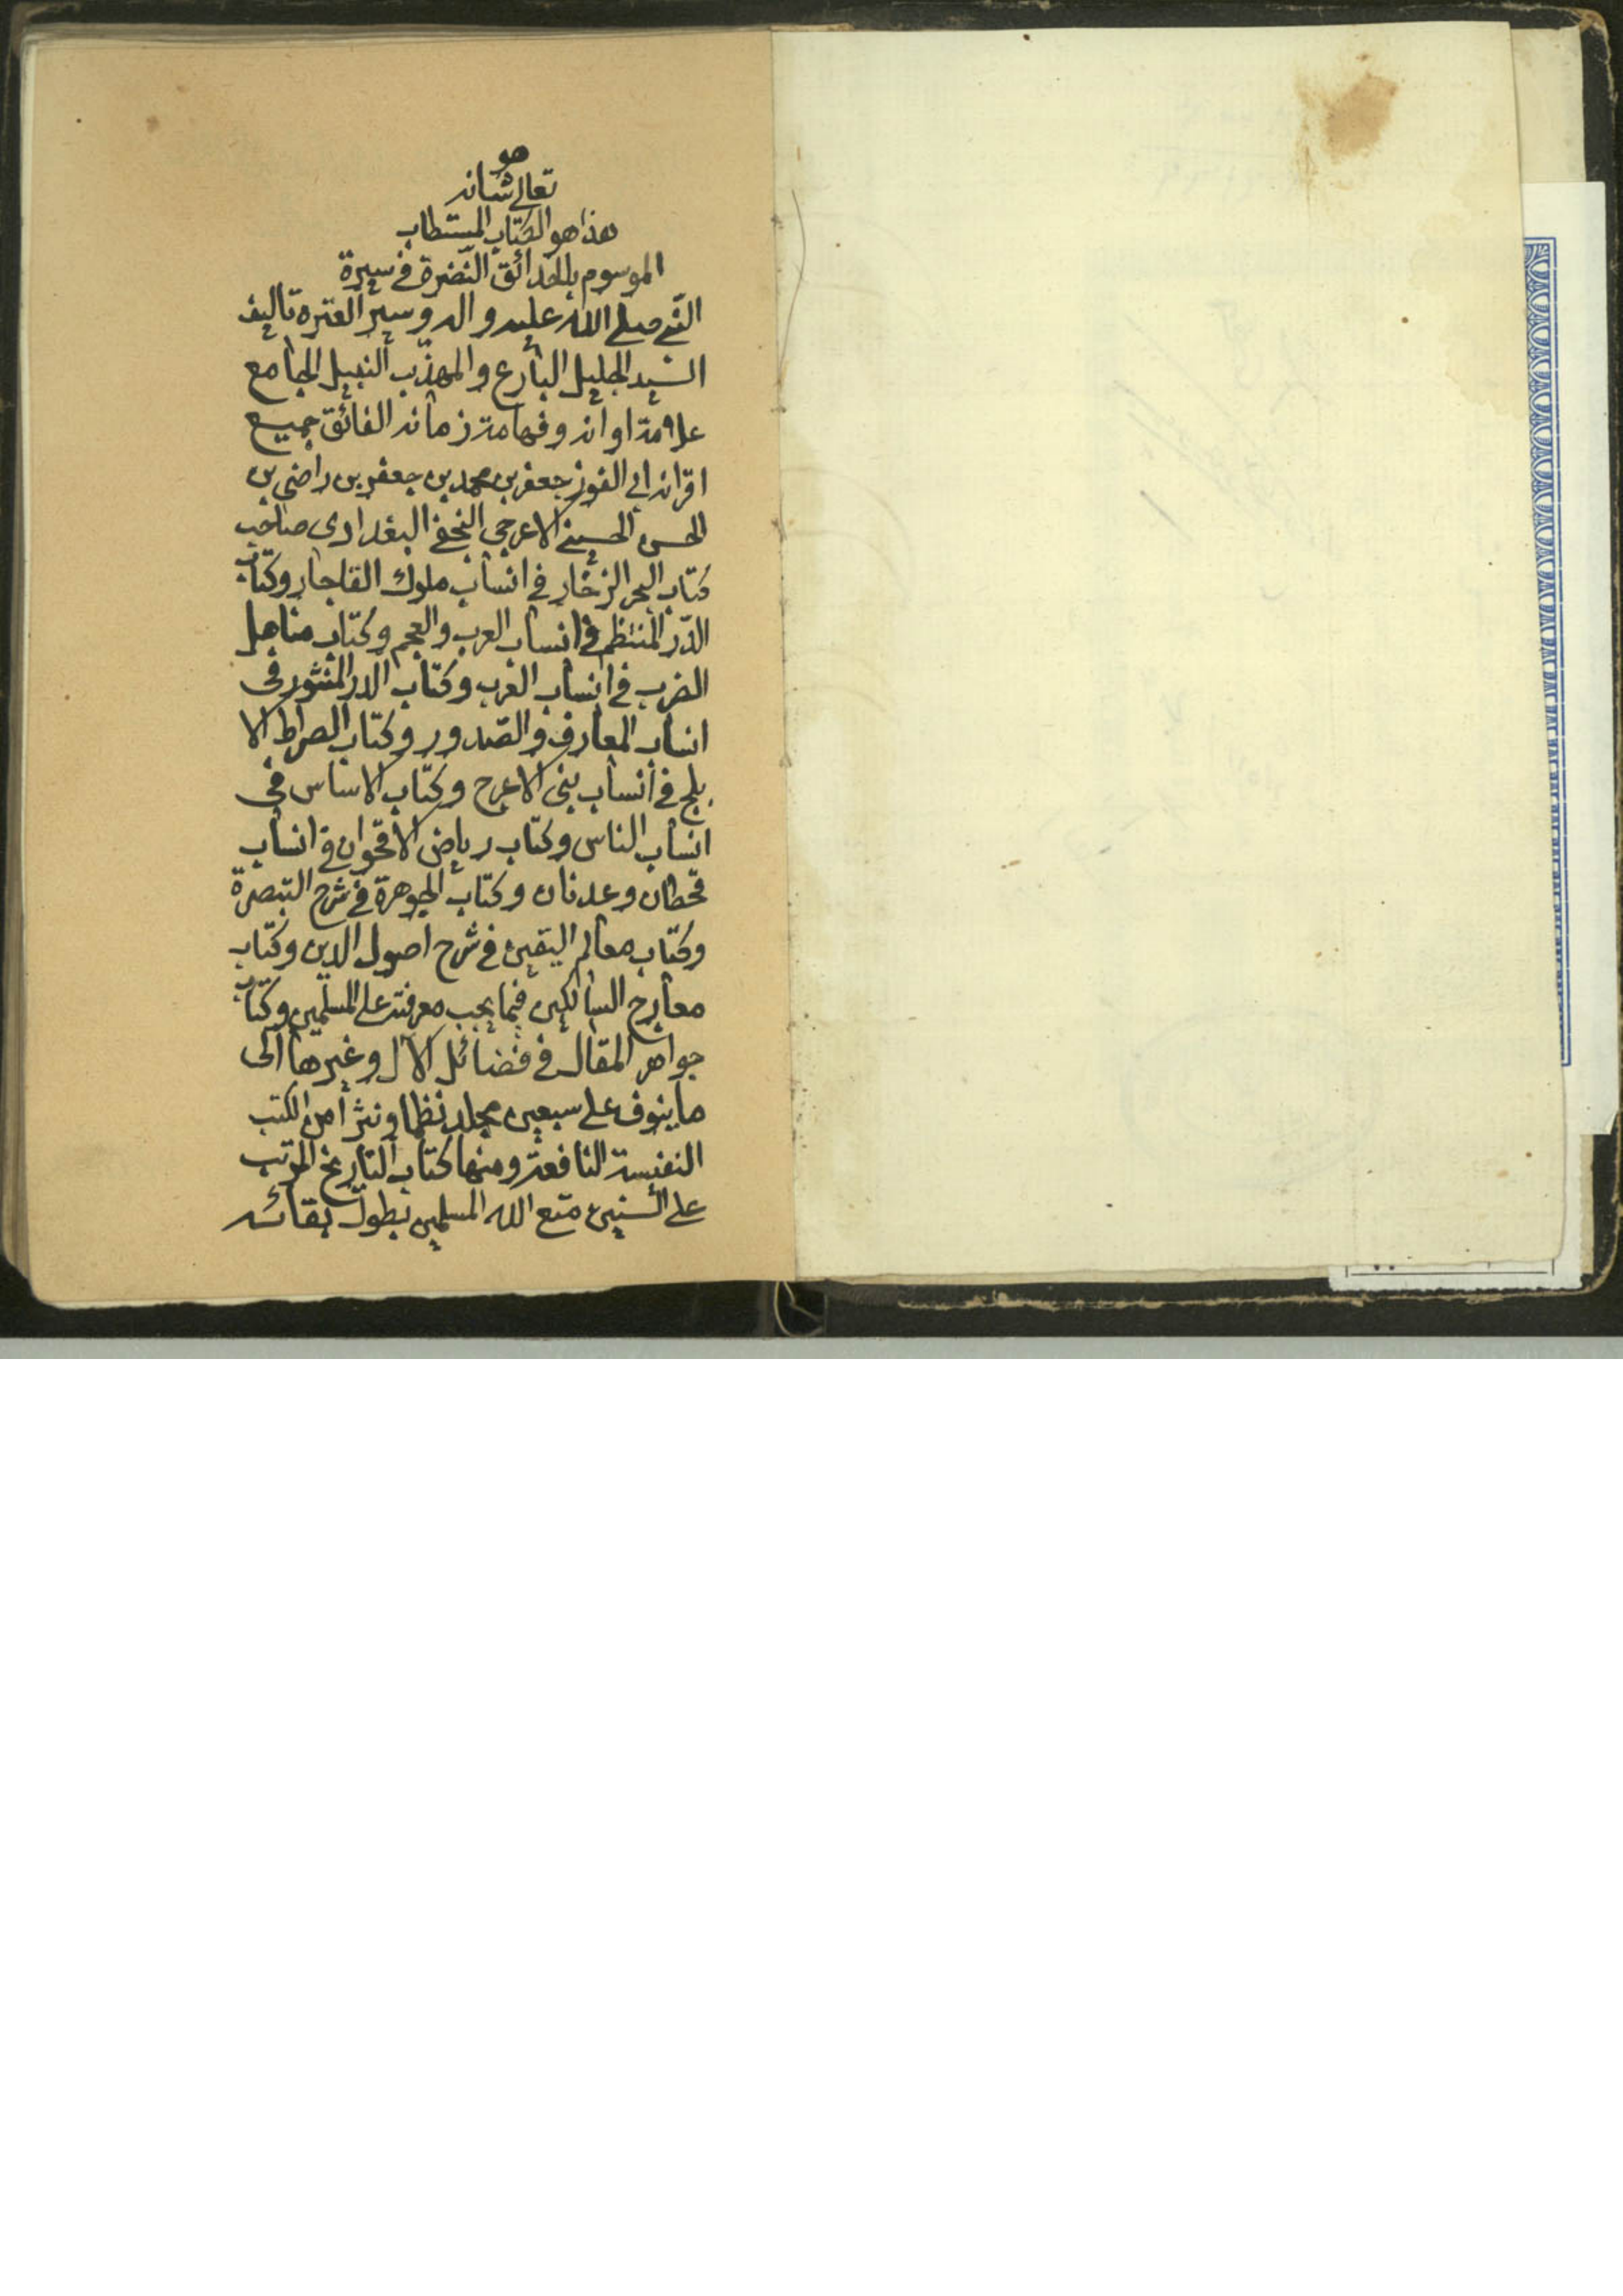 هو
تعالى شانه
هذا هو الكتاب المستطاب
الموسوم بالحدائق النّضرة في سيرة
النّبي صلى الله عليه واله وسير العترة تاليف
السّيد الجليل البارع والمهذّب النبيل الجامع
علامة اوانه وفهامة زمانه الفائق جميع
اقرانه ابي الفوز جعفر بن محمد بن جعفر بن راضي بن
الحسن الحسيني الاعرجي النجفي البغدادي صاحب
كتاب البحر الزخار في انساب ملوك القاجار وكتاب
الدّر المنتظم في انساب العرب والعجم وكتاب مناهل
الضرب في انساب العرب وكتاب الدر المنثور في
انساب المعارف والصدور وكتاب الصراط الا
بلج في انساب بني الاعرج وكتاب الاساس في
انساب الناس وكتاب رياض الاقحوان في انساب
قحطان وعدنان وكتاب الجوهرة في شرح التبصرة
وكتاب معالم اليقين في شرح اصول الدين وكتاب
معارج السالكين فيما يجب معرفته على المسلمين وكتاب
جواهر المقال في فضائل الآل وغيرها الى
ما ينوف على سبعين مجلد نظما ونثرا من الكتب
النفيسة النافعة ومنها كتاب التاريخ المرتب
على السنين متع الله المسلمين بطول بقائه